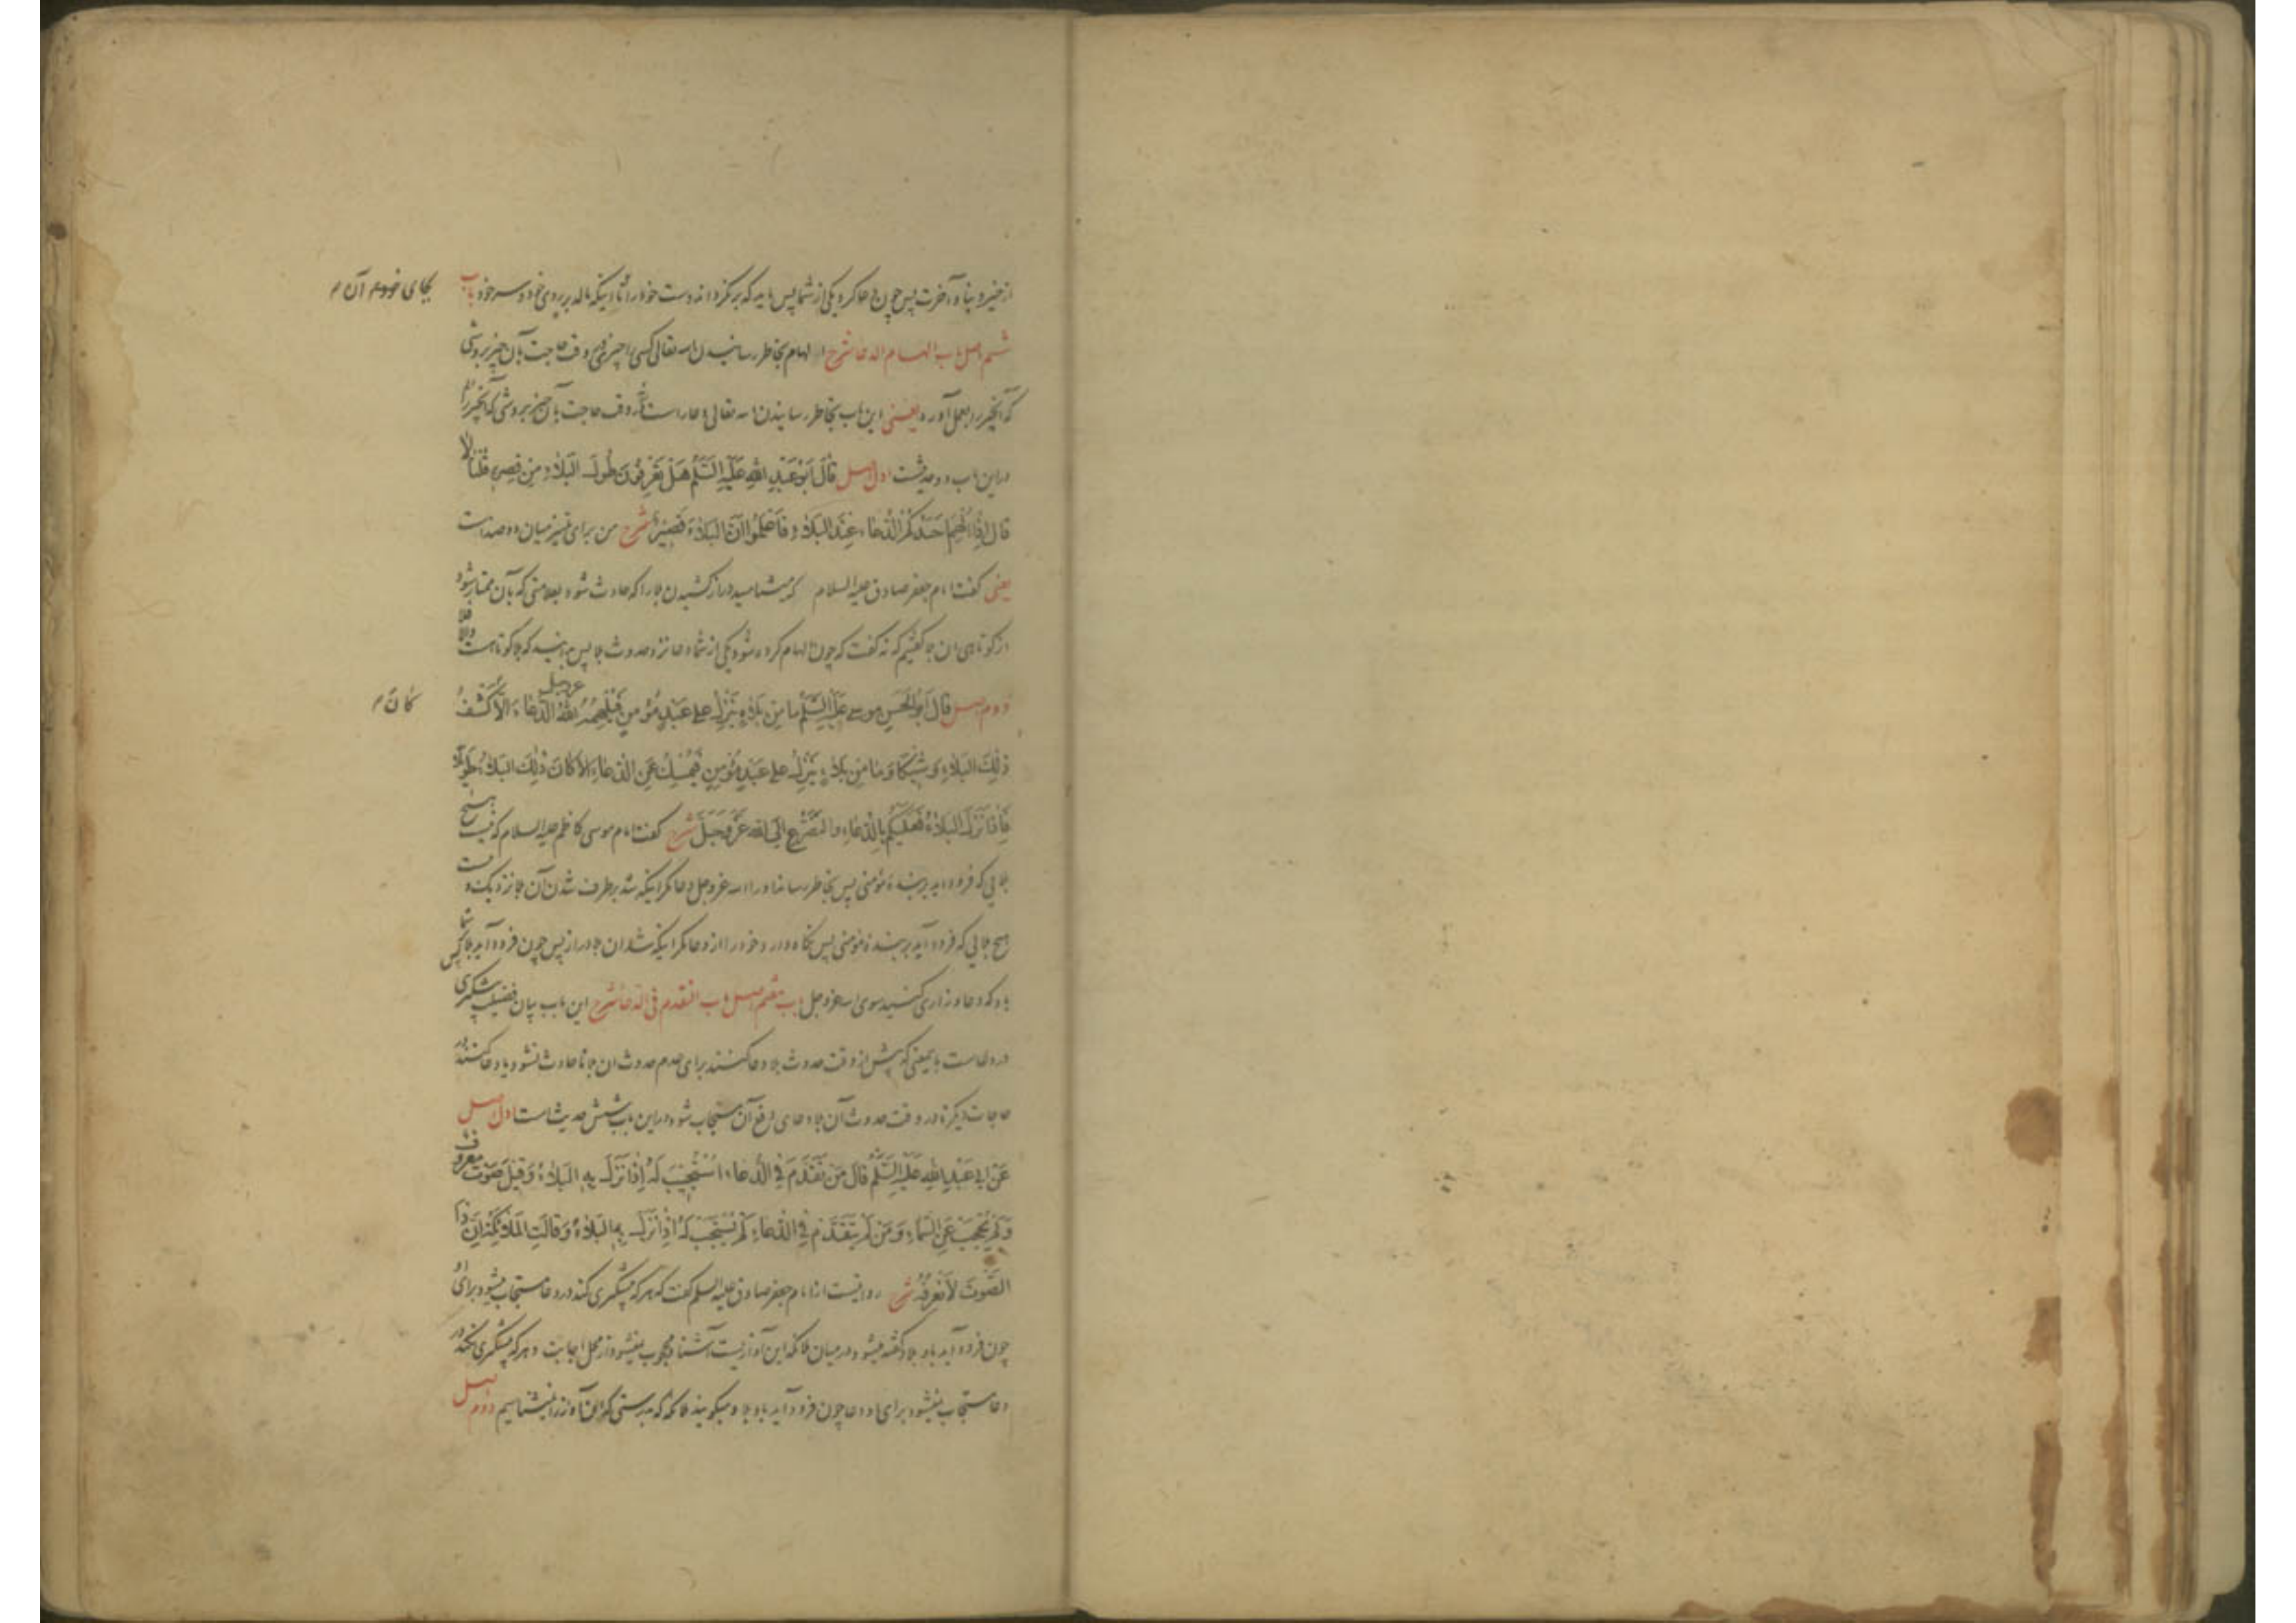 از خیر دنیا و آخرت پس چون دعا کرد یکی از شما پس باید که برنگرداند دست خود را تا اینکه مالد بر روی خود و سر خود باب
بجای خود و آن
ششم اصل باب الهام الدعا شرح الهام بخاطر رسانیدن الله تعالی کسی را چیزی وقت حاجت بآن چیز بروشی
که آنچیز را بعمل آورد یعنی این باب بخاطر رسانیدن الله تعالی دعا راست وقت حاجت بآن چیز بروشی که آنچیز را
در این باب دو حدیثست اول اصل قَالَ اَبُو عَبْدِ اللهِ عَلَيْهِ السَّلَمُ هَلْ تَعْرِفُونَ طُولَ البَلَاءِ مِنْ قِصَرِهِ قُلْنَا لَا
قَالَ اِذَا اُلْهِمَ اَحَدُكُمُ الدُّعَاءَ عِنْدَ البَلَاءِ فَاعْلَمُوا اَنَّ البَلَاءَ قَصِيرٌ شرح من برای تمیز میان دو ضد است
یعنی گفت امام جعفر صادق علیه السلام که میشناسید دراز کشیدن بلا را که حادث شود بعلامتی که بآن ممتاز شود
از کوتاهی ان بلا گفتیم که نه گفت که چون الهام کرده شود یکی از شما دعا نزد حدوث بلا پس بدانید که بلا کوتاهست
دوم اصل قَالَ اَبُو الْحَسَنِ موسی عَلَيْهِ السَّلَمُ مَا مِنْ بَلَاءٍ يَنْزِلُ عَلَى عَبْدٍ مُؤْمِنٍ فَيُلْهِمُهُ اللهُ عز وجل الدُّعَاءَ اِلَّا كَشْفُ
كانَ
ذٰلِكَ البَلَاءِ وَشِيكًا وَمَا مِنْ بَلَاءٍ يَنْزِلُ عَلَى عَبْدٍ مُؤْمِنٍ فَيُمْسِكُ عَنِ الدُّعَاءِ اِلَّا كَانَ ذٰلِكَ البَلَاءُ طَوِيلًا
فَاِذَا نَزَلَ البَلَاءُ فَعَلَيْكُمْ بِالدُّعَاءِ وَالتَّضَرُّعِ اِلَى اللهِ عَزَّ وَجَلَّ شرح گفت امام موسی کاظم علیه السلام که نیست هیچ
بلایی که فرود آید بر بندۀ مؤمنی پس بخاطر رساند او را الله عز وجل دعا مگر اینکه شد برطرف شدن آن بلا نزدیک و نیست
هیچ بلایی که فرود آید بر بندۀ مؤمنی پس نگاه دارد خود را از دعا مگر اینکه شد ان بلا دراز پس چون فرود آید بلا پس شما
باد که دعا و زاری کنید سوی الله عز وجل باب هفتم اصل باب التقدم فی الدعا شرح این باب بیان فضیلت پیشگیری
در دعاست بایمعنی که پیش از وقت حدوث بلا دعا کنند برای عدم حدوث ان بلا تا حادث نشود یا دعا کنند در
حاجات دیگر تا در وقت حدوث آن بلا دعای دفع آن مستجاب شود در این باب شش حدیث است اول اصل
عَنْ اَبِي عَبْدِ اللهِ عَلَيْهِ السَّلَمُ قَالَ مَنْ تَقَدَّمَ فِي الدُّعَاءِ اسْتُجِيبَ لَهُ اِذَا نَزَلَ بِهِ البَلَاءُ وَقِيلَ صَوْتٌ مَعْرُوفٌ
وَلَمْ يُحْجَبْ عَنِ السَّمَاءِ وَمَنْ لَمْ يَتَقَدَّمْ فِي الدُّعَاءِ لَمْ يُسْتَجَبْ لَهُ اِذَا نَزَلَ بِهِ البَلَاءُ وَقَالَتِ المَلَائِكَةُ اِنَّ ذَا
الصَّوْتَ لَا نَعْرِفُهُ شرح روایتست از امام جعفر صادق علیه السلم گفت که هر که پیشگیری کند در دعا مستجاب میشود برای او
چون فرود آید باو بلا و گفته میشود در میان ملائکه این آوازیست آشنا و محجوب نمیشود از محل اجابت و هر که پیشگیری نکند در
دعا مستجاب نمیشود برای او دعا چون فرود آید باو بلا و میگویند ملائکه که بدرستی که این آواز را نمیشناسیم دوم اصل